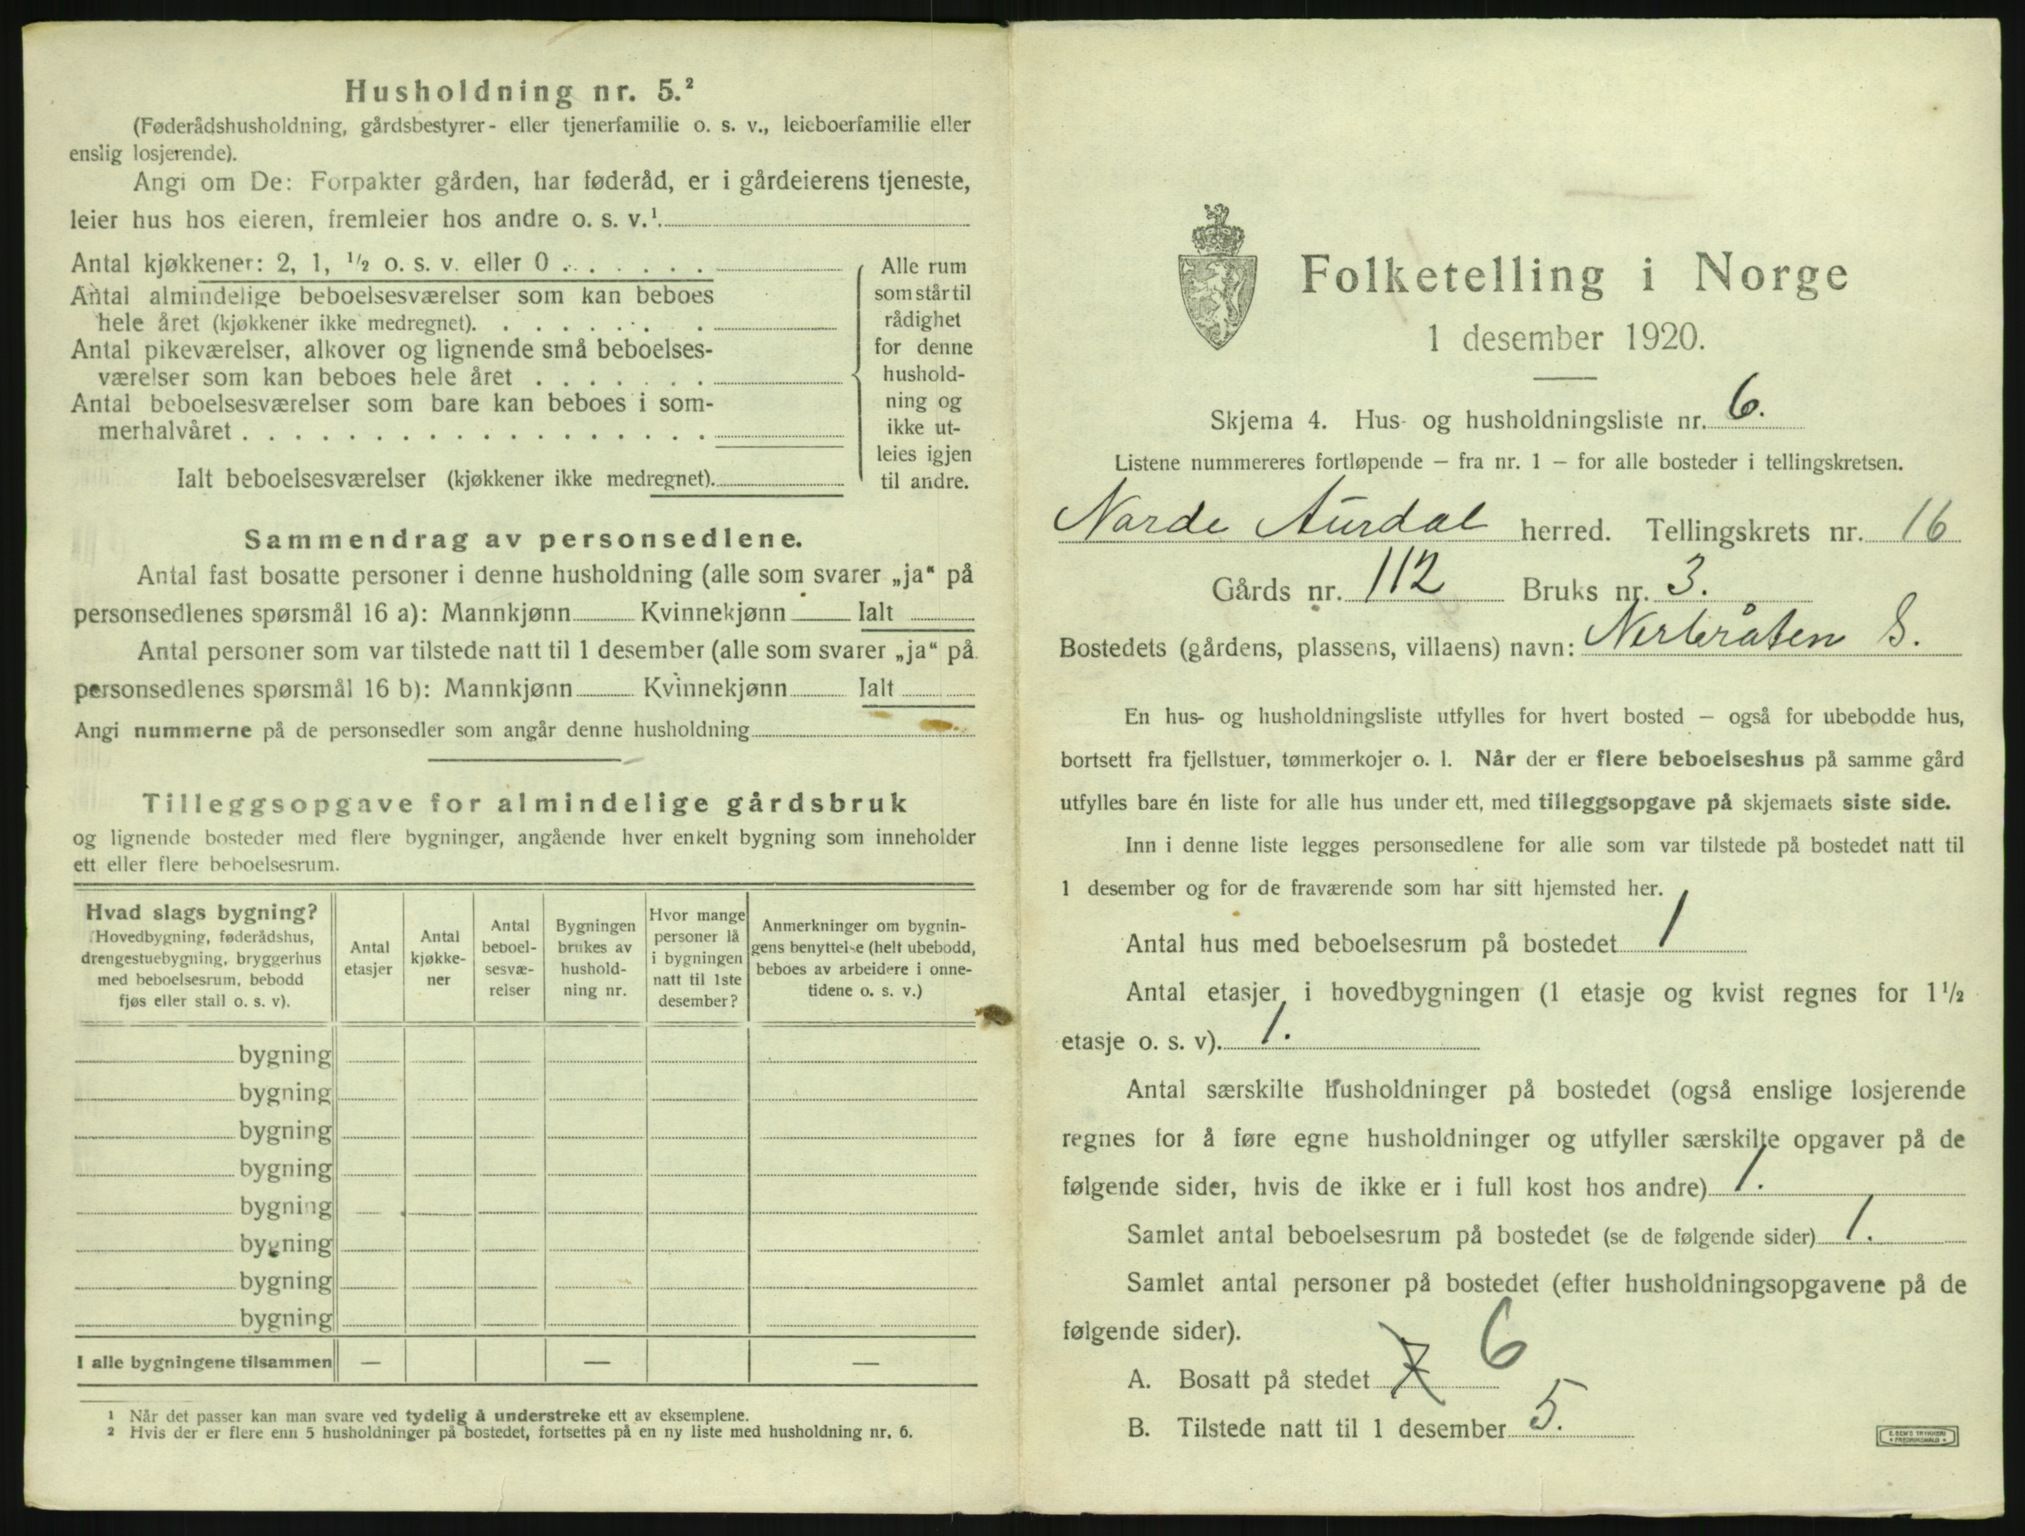 Husholdning nr. 5.²
(Føderådshusholdning, gårdsbestyrer- eller tjenerfamilie o. s. v., leieboerfamilie eller
enslig losjerende).
Angi om De: Forpakter gården, har føderåd, er i gårdeierens tjeneste,
leier hus hos eieren, fremleier hos andre o. s. v.¹
Antal kjøkkener: 2, 1, ¹/₂ o. s. v. eller 0
Antal almindelige beboelsesværelser som kan beboes
hele året (kjøkkener ikke medregnet).
Antal pikeværelser, alkover og lignende små beboelses-
værelser som kan beboes hele året
Antal beboelsesværelser som bare kan beboes i som-
merhalvåret
Ialt beboelsesværelser (kjøkkener ikke medregnet).
Alle rum
som står til
rådighet
for denne
hushold-
ning og
ikke ut-
leies igjen
til andre.
Sammendrag av personsedlene.
Antal fast bosatte personer i denne husholdning (alle som svarer „ja“ på
personsedlenes spørsmål 16 a): Mannkjønn Kvinnekjønn Ialt
Antal personer som var tilstede natt til 1 desember (alle som svarer „ja“ på
personsedlenes spørsmål 16 b): Mannkjønn Kvinnekjønn Ialt
Angi nummerne på de personsedler som angår denne husholdning
Tilleggsopgave for almindelige gårdsbruk
og lignende bosteder med flere bygninger, angående hver enkelt bygning som inneholder
ett eller flere beboelsesrum.
Hvad slags bygning?
(Hovedbygning, føderådshus,
drengestuebygning, bryggerhus
med beboelsesrum, bebodd
fjøs eller stall o. s. v).
Antal
etasjer
Antal
kjøkke-
ner
Antal
beboel-
sesvæ-
relser
Bygningen
brukes av
hushold-
ning nr.
Hvor mange
personer lå
i bygningen
natt til 1ste
desember?
Anmerkninger om bygnin-
gens benyttelse (helt ubebodd,
beboes av arbeidere i onne-
tidene o. s. v.)
bygning
bygning
bygning
bygning
bygning
bygning
bygning
bygning
I alle bygningene tilsammen — — —
¹ Når det passer kan man svare ved tydelig å understreke ett av eksemplene.
² Hvis der er flere enn 5 husholdninger på bostedet, fortsettes på en ny liste med husholdning nr. 6.
Folketelling i Norge
1 desember 1920.
Skjema 4. Hus- og husholdningsliste nr. 6.
Listene nummereres fortløpende – fra nr. 1 – for alle bosteder i tellingskretsen.
Nordre Aurdal herred. Tellingskrets nr. 16
Gårds nr. 112 Bruks nr. 3.
Bostedets (gårdens, plassens, villaens) navn: Nerbråten S.
En hus- og husholdningsliste utfylles for hvert bosted – også for ubebodde hus,
bortsett fra fjellstuer, tømmerkojer o. l. Når der er flere beboelseshus på samme gård
utfylles bare én liste for alle hus under ett, med tilleggsopgave på skjemaets siste side.
Inn i denne liste legges personsedlene for alle som var tilstede på bostedet natt til
1 desember og for de fraværende som har sitt hjemsted her.
Antal hus med beboelsesrum på bostedet 1
Antal etasjer i hovedbygningen (1 etasje og kvist regnes for 1¹/₂
etasje o. s. v). 1.
Antal særskilte husholdninger på bostedet (også enslige losjerende
regnes for å føre egne husholdninger og utfyller særskilte opgaver på de
følgende sider, hvis de ikke er i full kost hos andre) 1.
Samlet antal beboelsesrum på bostedet (se de følgende sider) 1.
Samlet antal personer på bostedet (efter husholdningsopgavene på de
følgende sider).
A. Bosatt på stedet 7 6
B. Tilstede natt til 1 desember 5.
E. SEM'S TRYKKERI
FREDRIKSHALD